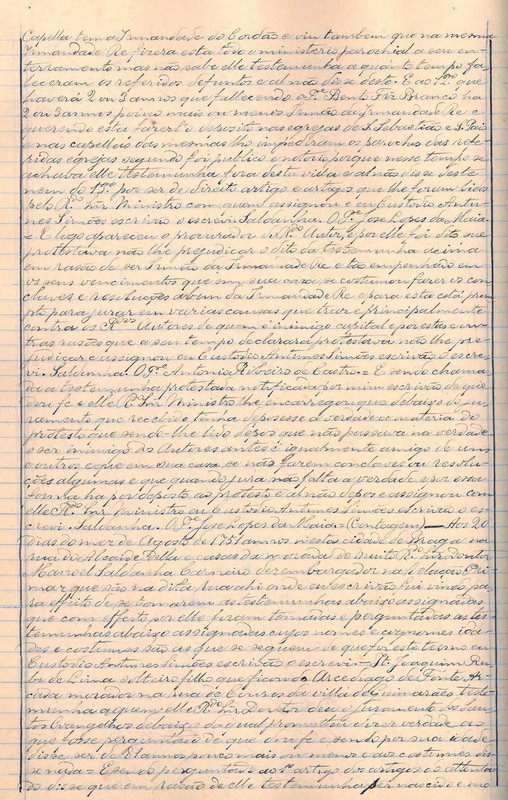 Capella tem a Irmandade do Cordão e viu tambem que na mesma
Irmandade Re fizera esta todo o ministerio parochial a seu en-
terramento mas não sabe elle testemunha a quanto tempo fa-
leceram os referidos defuntos e al não disse deste. E ao 12º que
haverá 2 ou 3 annos que fallecendo o Pe. Bento Frz Branco ha
2 ou 3 annos pouco mais ou menos Irmão da Irmandade Re e
querendo esta fazer lhe deposito nas egrejas de S. Sebastião e S. Paio
e nas capellas das mesmas lho impediram os parochos das refe-
ridas egrejas segundo foi publico e notorio porque nesse tempo se
achava elle testemunha fora desta villa e al não disse deste
nem do 13º por ser de direito artigo e artigos que lhe foram lidos
pelo Rdo Snr Ministro com quem assignou e eu Custodio Antu-
nes Simões escrivão o escrevi. Saldanha. O Pe. Jose Lopes da Maia
= E logo apareceu o procurador do Rdo Autor e por elle foi dito que
protestava não lhe prejudicar o dito da testemunha acima
em rasão de ser Irmão da Irmandade Re e tão empenhado em
os seus vencimentos que em sua casa se costumou fazer os con-
claves e resoluções abem da Irmandade Re e para esta está prom-
pto para jurar em varias causas que traz e principalmente
contra os Rdos Autores de quem é inimigo capital e por estas e ou-
tras rasões que a seu tempo declarará protestava não lhe pre-
judicar e assignou eu Custodio Antunes Simões escrivão o escre-
vi. Saldanha. O Pe. Antonio Ribeiro de Castro. = E sendo chama-
da a testemunha protestada notificada por mim escrivão de que
dou fe e elle Rdo Snr Ministro lhe encarregou que debaixo do ju-
ramento que recebido tinha depozesse a verdade a materia do
protesto que sendo-lhe lido depos que não passava na verdade
o ser inimigo dos Autores antes é igualmente amigo de uns
e outros e que em sua casa se não fazem conclaves ou resolu-
ções algumas e que quando jura não falta a verdade e por essa
forma ha por deposto ao protesto e al não depos e assignou com
elle Rdo Snr Ministro eu Custodio Antunes Simões escrivão o es-
crevi. Saldanha. O Pe. Jose Lopes da Maia = (Contagem) — Aos 20
dias do mez de Agosto de 1751 annos nesta cidade de Braga na
rua do Alcaide Della e casas da morada do muito Rdo Snr Doutor
Manoel Saldanha Carneiro dezembargador na Relação Pri-
maz que são na dita rua ahi onde eu escrivão fui vindo pa-
ra effeito de se tomarem as testemunhas abaixo assignadas
que com effeito por elle foram tomadas e perguntadas as tes-
temunhas abaixo assignadas cujos nomes e cognomes ida-
des e costumes são as que se seguem de que fiz este termo eu
Custodio Antunes Simões escrivão o escrevi — It. Joaquim
de Lima solteiro filho que ficou do Arcediago de Fonte Ar-
cada morador na rua de Couros da villa de Guimarães teste-
munha a quem elle Rdo Snr Doutor deu o juramento dos San-
tos Evangelhos debaixo do qual prometteu dizer verdade ao
que fosse perguntado de que dou fe e sendo por sua idade
disse ser de annos pouco mais ou menos e aos costumes dis-
se nada = E sendo perguntado ao 1º artigo dos artigos
do disse que em rasão de elle testemunha ser nascido e mo